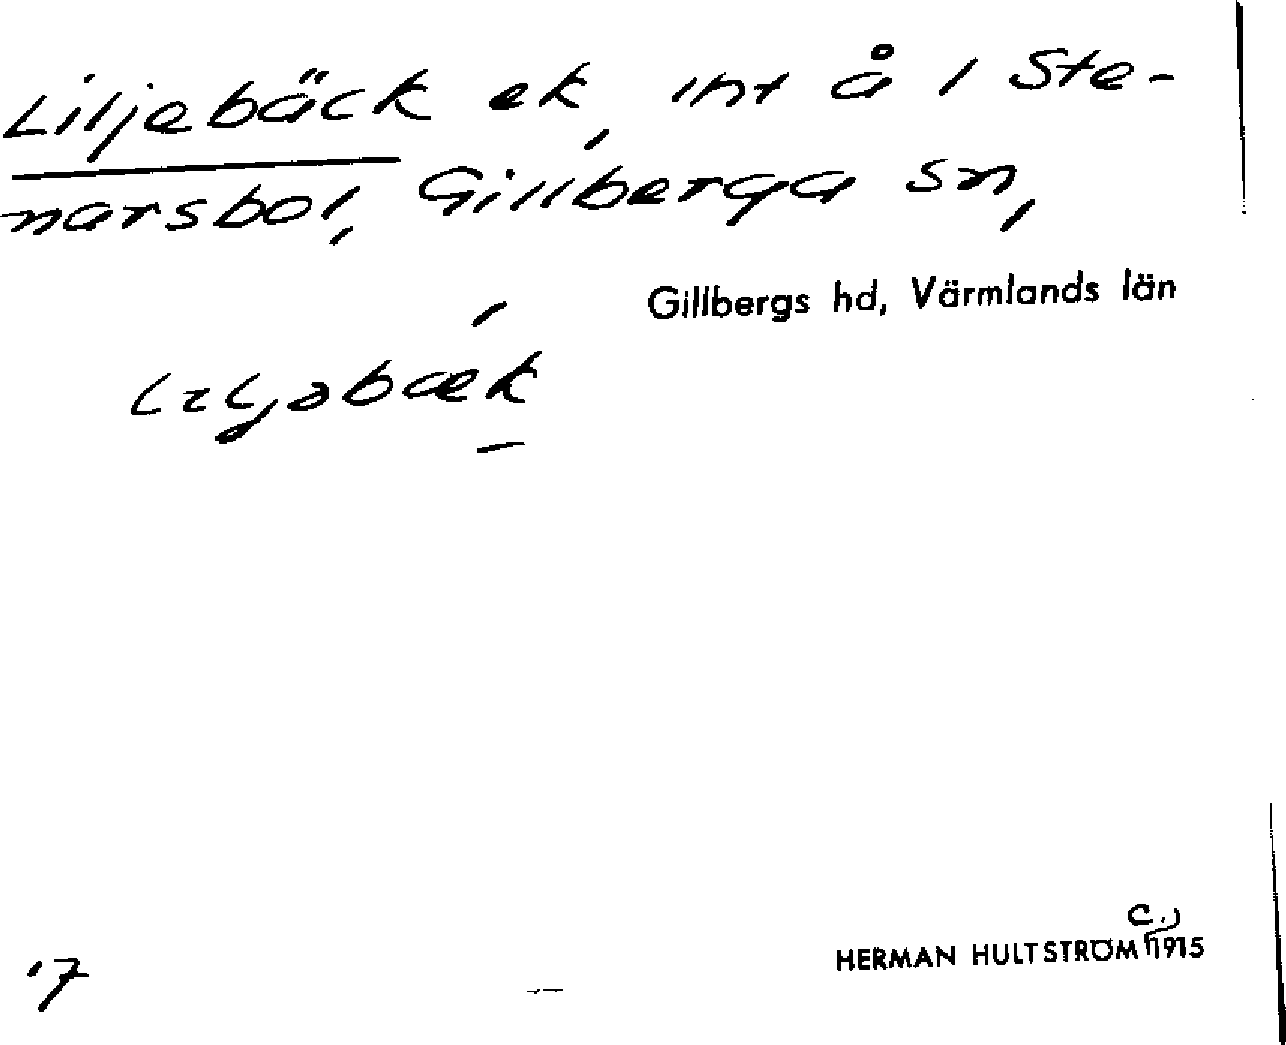 Liljebäck ek, int å / Ste-
narsbol, Gillberga sn,
Gillbergs hd, Värmlands län
c.)
HERMAN HULTSTRÖM 1915
'7